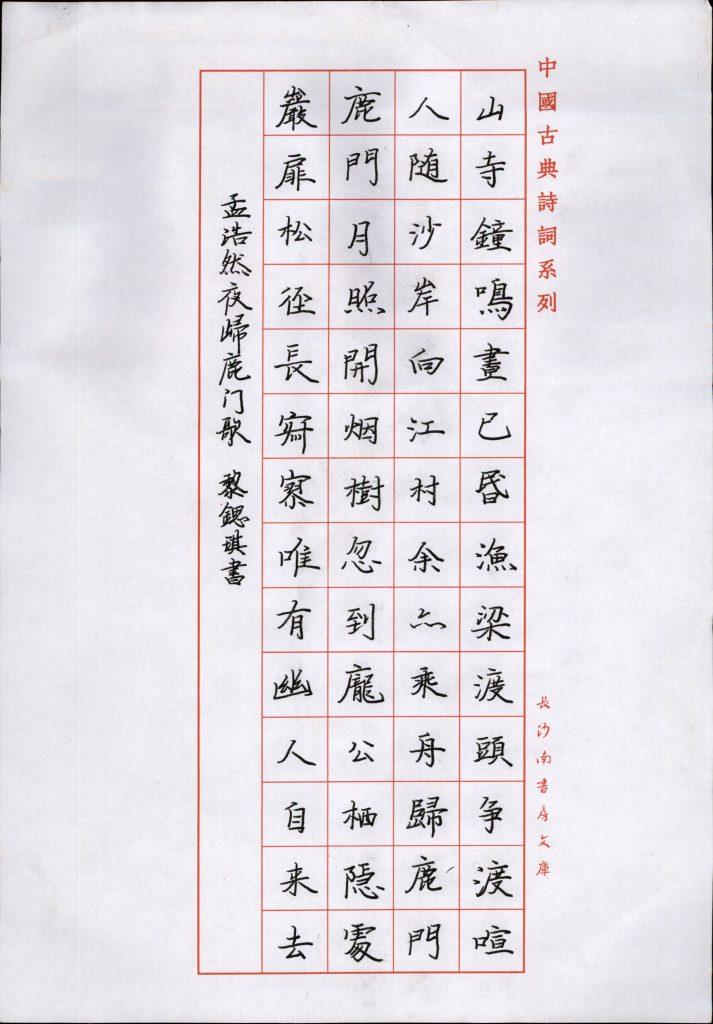 中國古典詩詞系列
長沙南書房文庫
山寺鐘鳴晝已昏漁梁渡頭争渡喧
人随沙岸向江村余亦乘舟歸鹿門
鹿門月照開烟樹忽到龐公栖隱處
巖扉松徑長寂寥唯有幽人自来去
孟浩然夜歸鹿门歌 黎鍶琪書